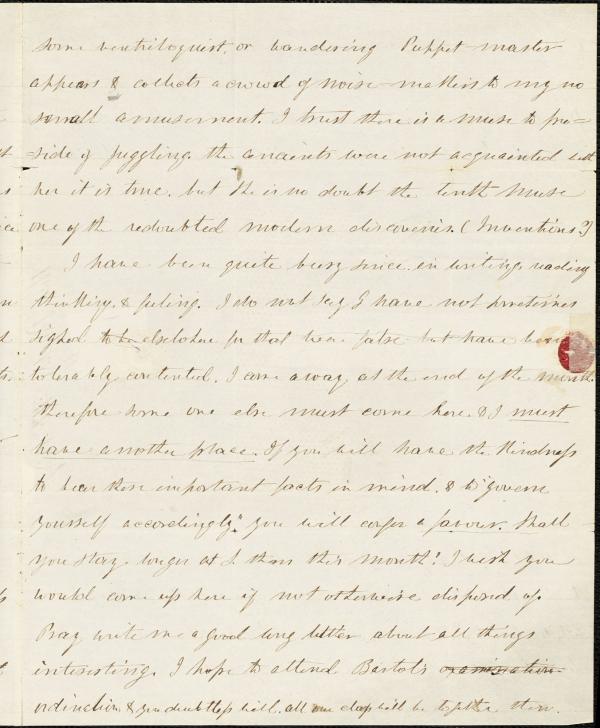 some ventriloquist. or wandering Puppet-master
appears & collects a crowd of noise-makers to my no
small amusement. I trust there is a muse to pre=
side of juggling. the ancients were not acquainted with
her it is true. but she is no doubt the tenth Muse
one of the redoubted modern discoveries. (Inventions?)
I have been quite busy since. in writing, reading
thinking. & feeling. I do not say I have not sometimes
sighed to be elsewhere for that were false but have been
tolerably contented. I come away at the end of the month.
therefore some one else must come here. & I must
have another place. If you will have the kindness
to bear these important facts in mind. & to "govern
yourself accordingly" you will confer a favour. Shall
you stay longer at than this month? I wish you
would come up here if not otherwise disposed of.
Pray write me a good long letter about all things
interesting. I hope to attend Bartol's examination
ordination & you doubtless will. all our class will be together then.